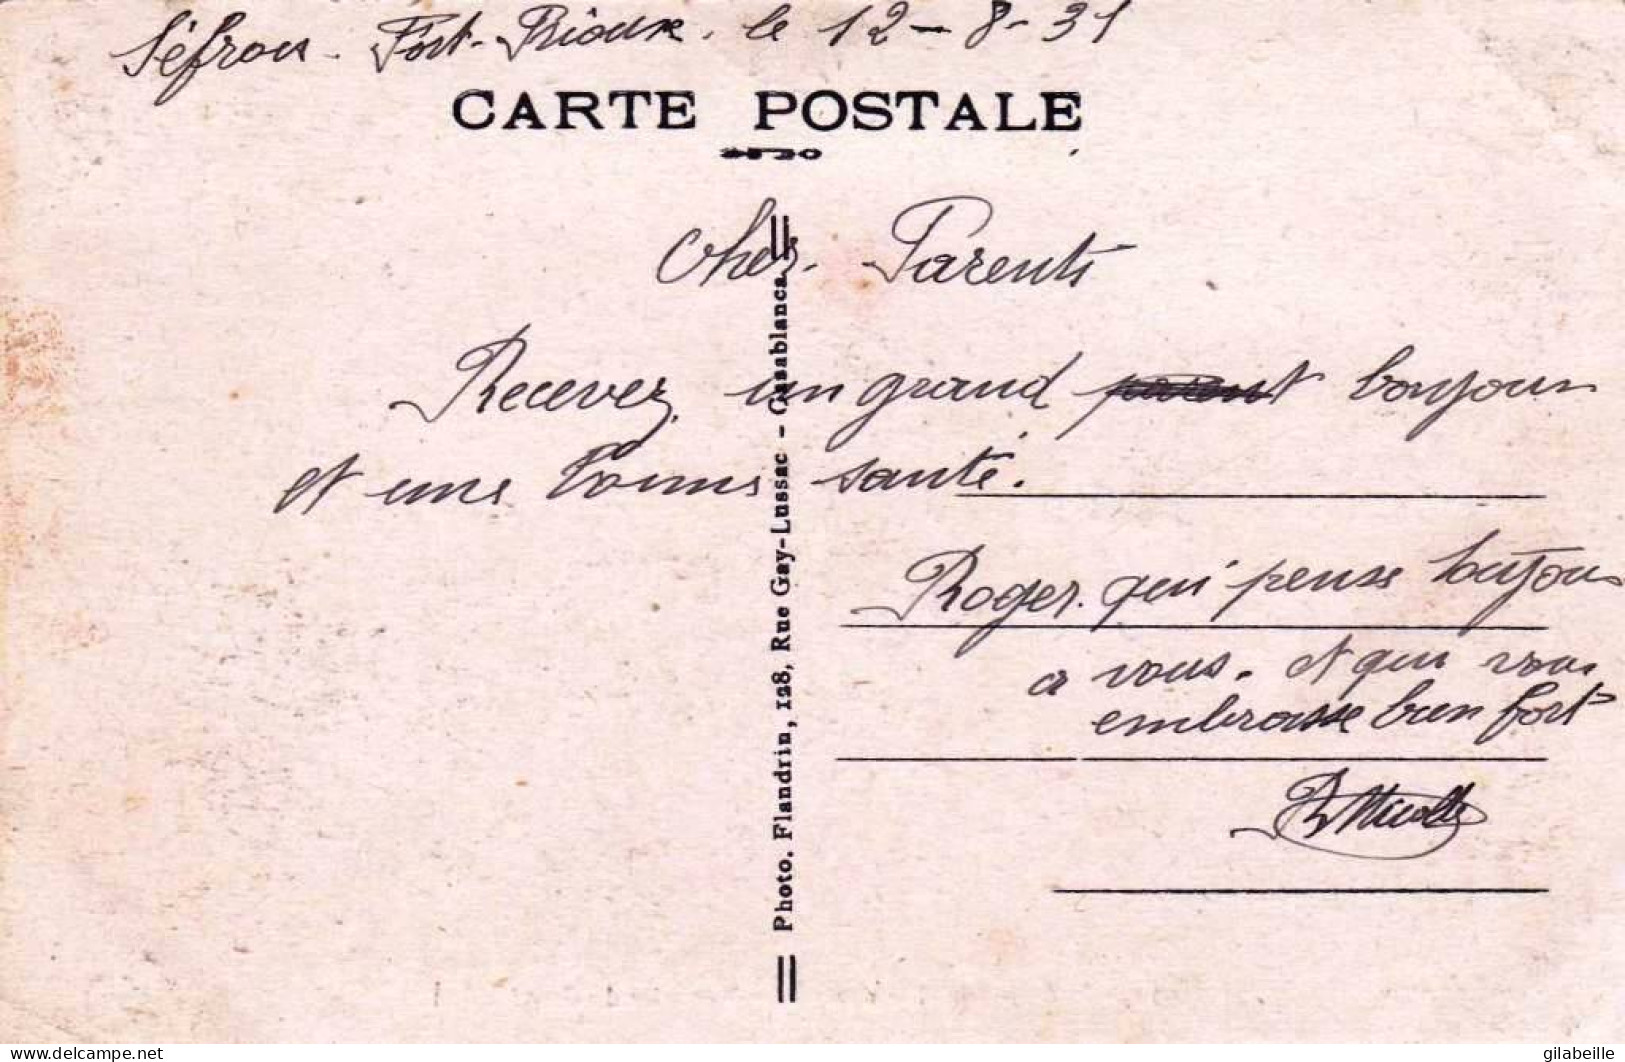 Séfrou - Fort - Prioux. le 12 - 8 - 31
CARTE POSTALE
Cher. Parents
Recevez un grand bonjour
et une bonne santé.
Roger. qui pense toujours
a vous. et qui vous
embrasse bien fort
Photo. Flandrin, 128, Rue Gay-Lussac - Casablanca
delcampe.net
gilabeille